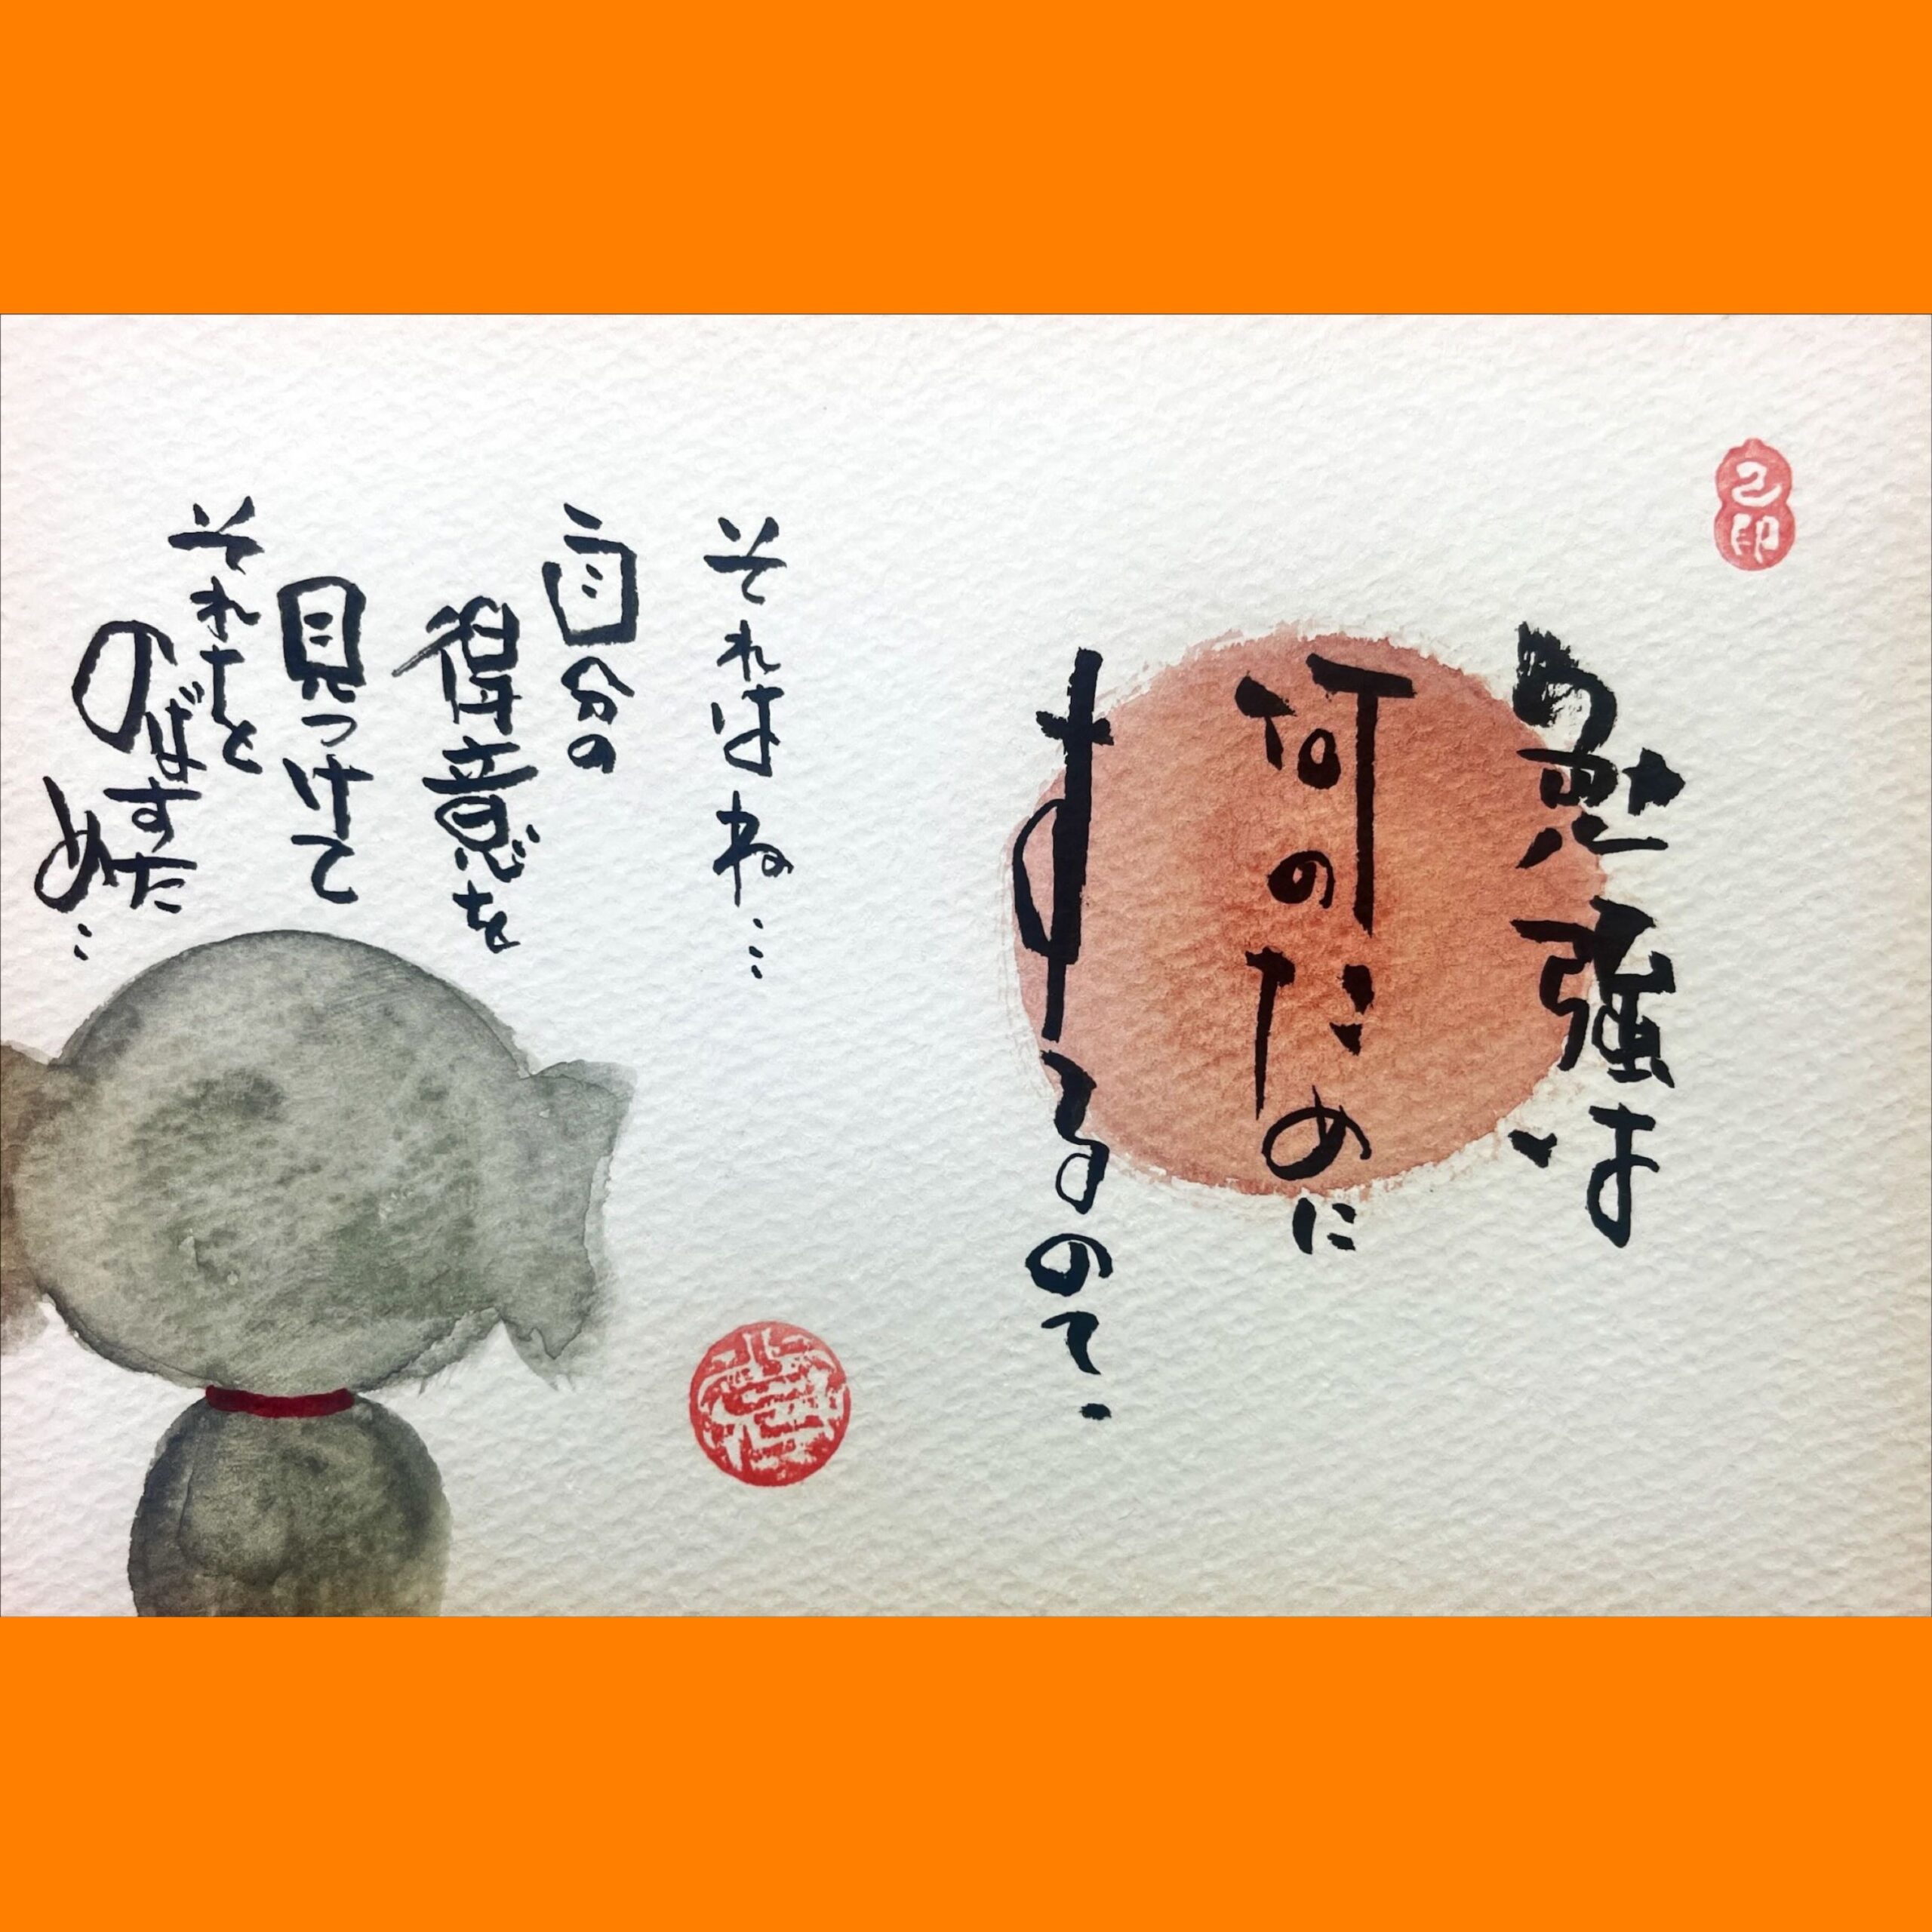 己印
勉強は
何のために
するの?
それはね…
自分の
得意を
見つけて
それを
のばすため…